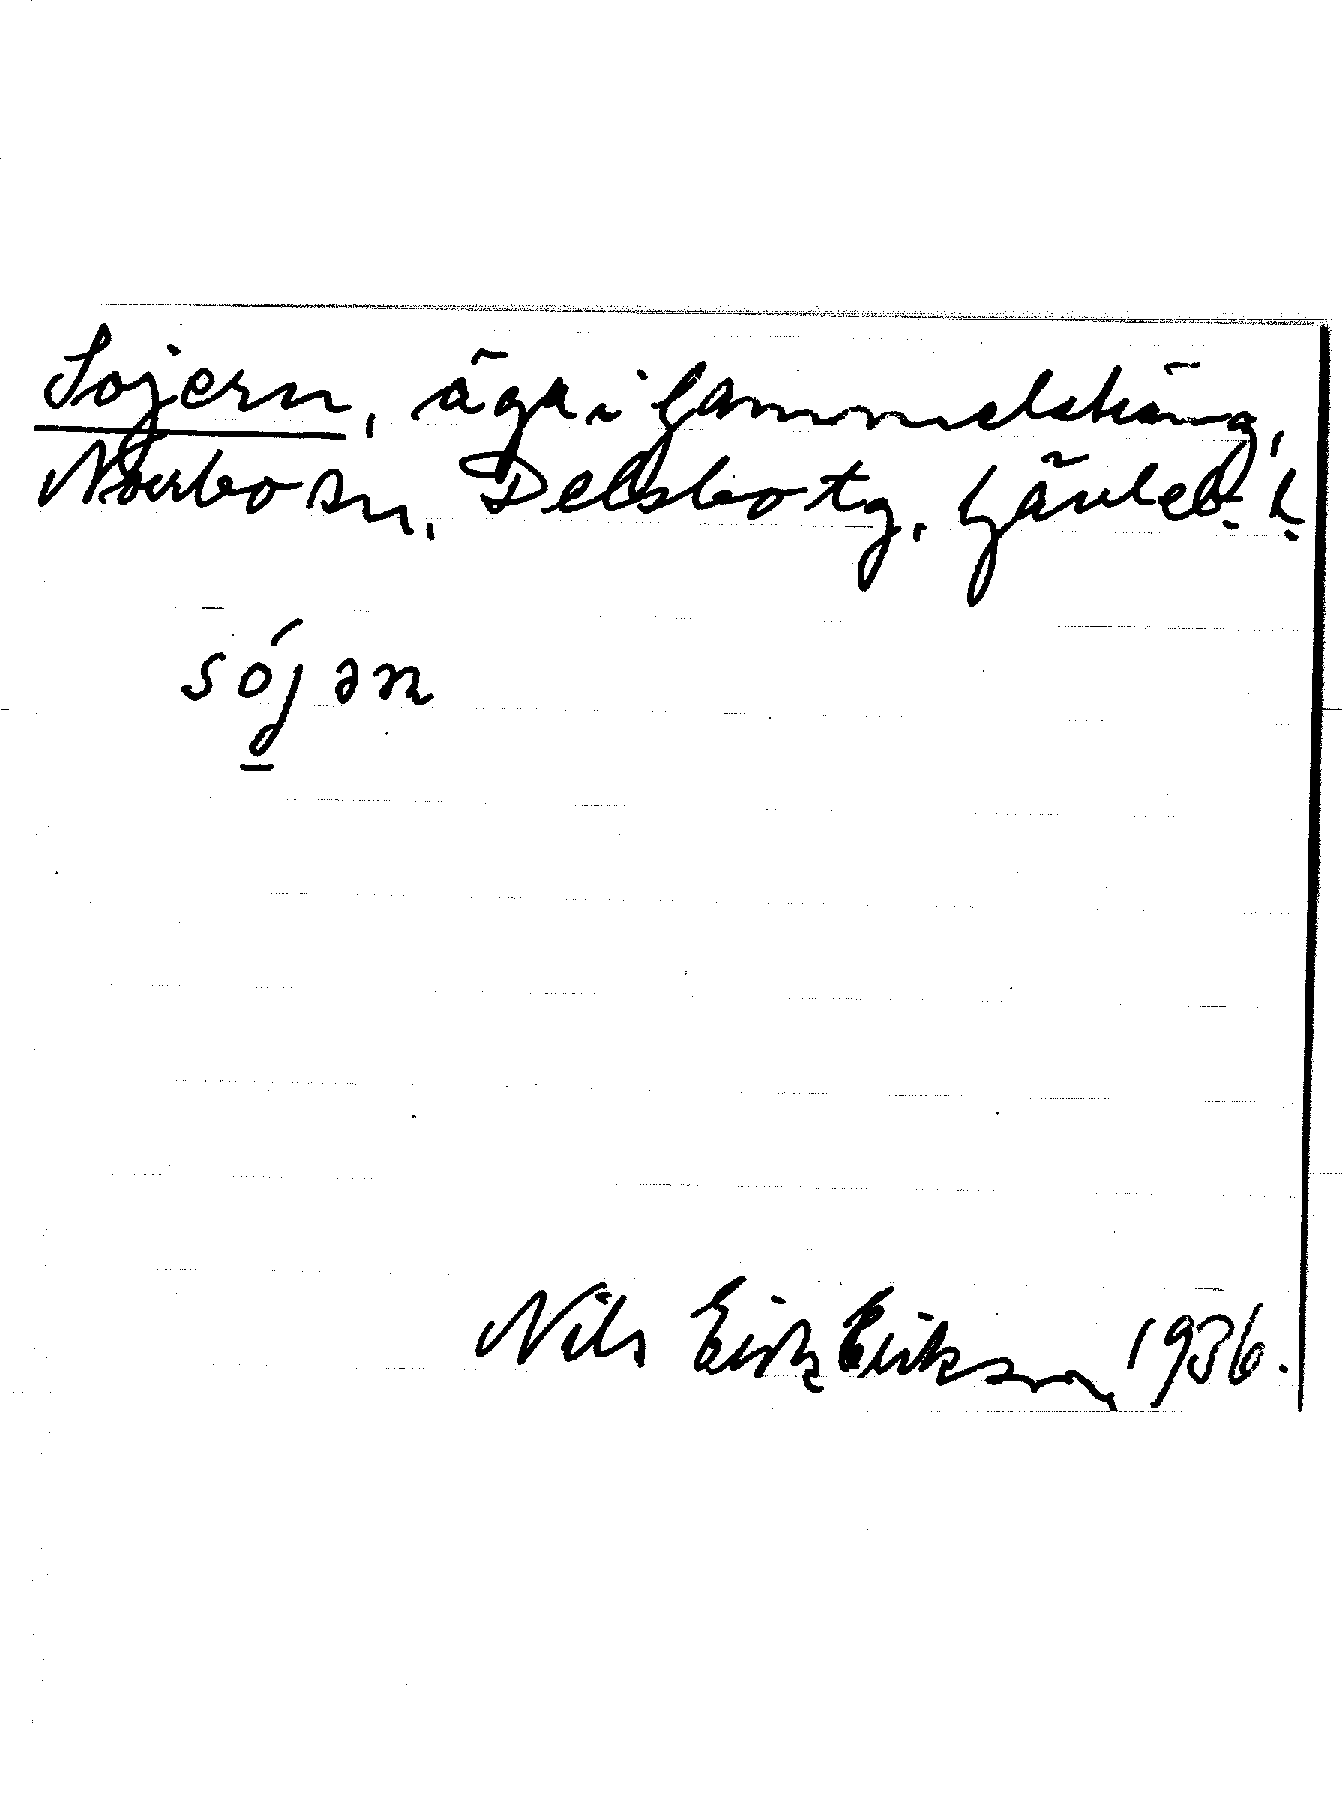 Sojern, äga i Gammelsträng,
Norrbo sn, Delsbo tg, Gävleb. l.
sójən
Nils Erik Eriksson 1936.